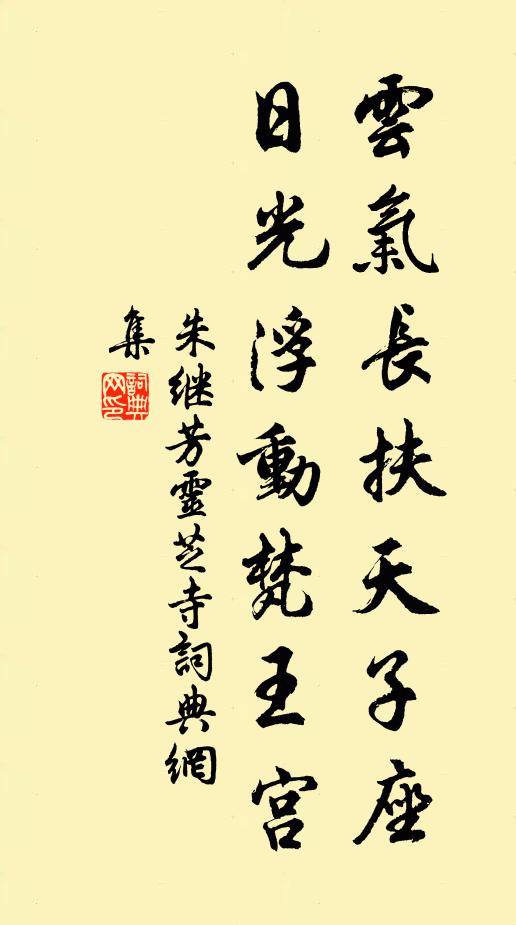 雲氣長扶天子座
日光浮動梵王宮
朱继芳靈芝寺詞典網
集
詞典网印